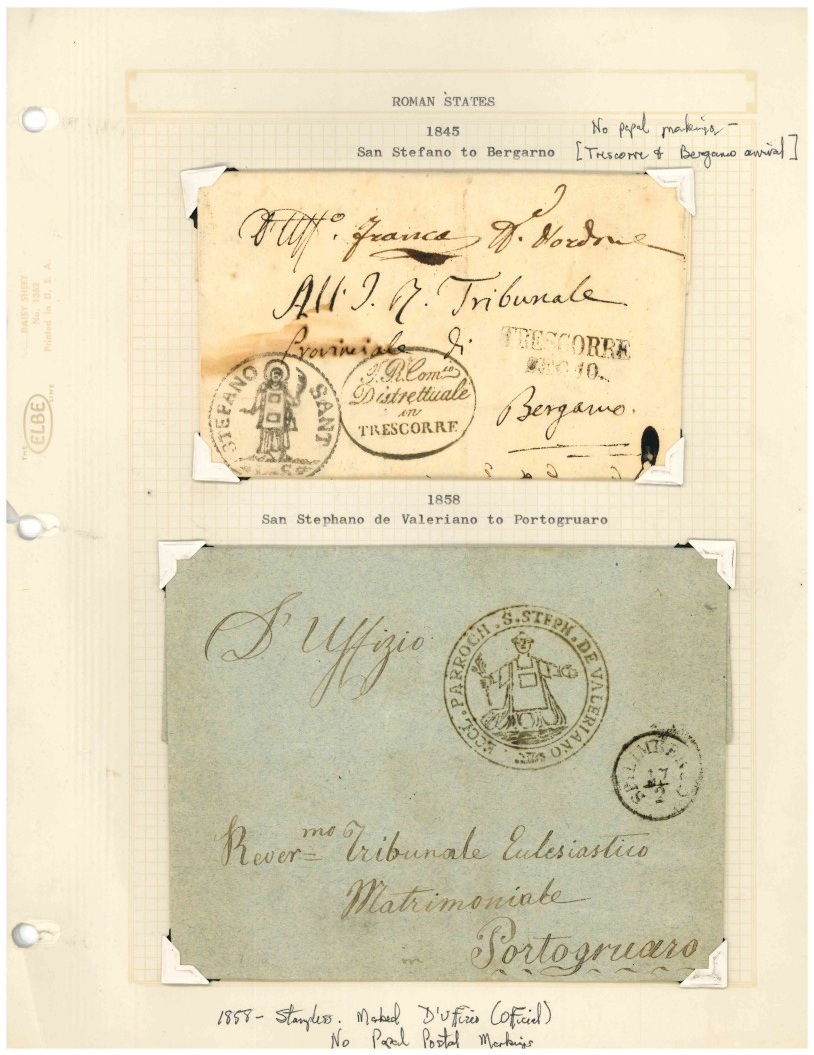 ROMAN STATES
1845
San Stefano to Bergarno
No papal markings -
[Trescorre & Bergamo arrival]
D'Uff.o Franca
All' I. R. Tribunale
Provinciale di
TRESCORRE
DEC 10.
Bergamo.
STEFANO SANT
I. R. Com.io
Distrettuale
in
TRESCORRE
1858
San Stephano de Valeriano to Portogruaro
D'Uffizio
ECCL. PARROCH. S. STEPH. DE VALERIANO
SPILIMBERGO
17
2
Rever.mo Tribunale Eclesiastico
Matrimoniale
Portogruaro
1858 - Stampless. Marked D'Uffizio (Official)
No Papal Postal Markings
DAISY SHEET
No. 1362
Printed in U. S. A.
THE ELBE LINE